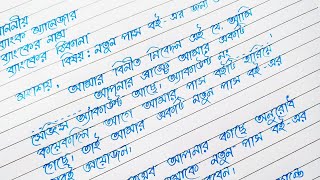 মাননীয়
ব্যাংক ম্যানেজার
ব্যাংকের নাম
ব্যাংকের ঠিকানা
বিষয়: নতুন পাস বই এর জন্য
মহাশয়, আমার বিনীত নিবেদন এই যে, আমি
আপনার ব্যাংকে আমার একটি
সেভিংস অ্যাকাউন্ট আছে। অ্যাকাউন্ট নং
কয়েকদিন আগে আমার পাস বইটি হারিয়ে
গেছে। তাই আমার একটি নতুন পাস বই এর
প্রয়োজন।
আপনার কাছে অনুরোধ
আমাকে নতুন পাস বই এর